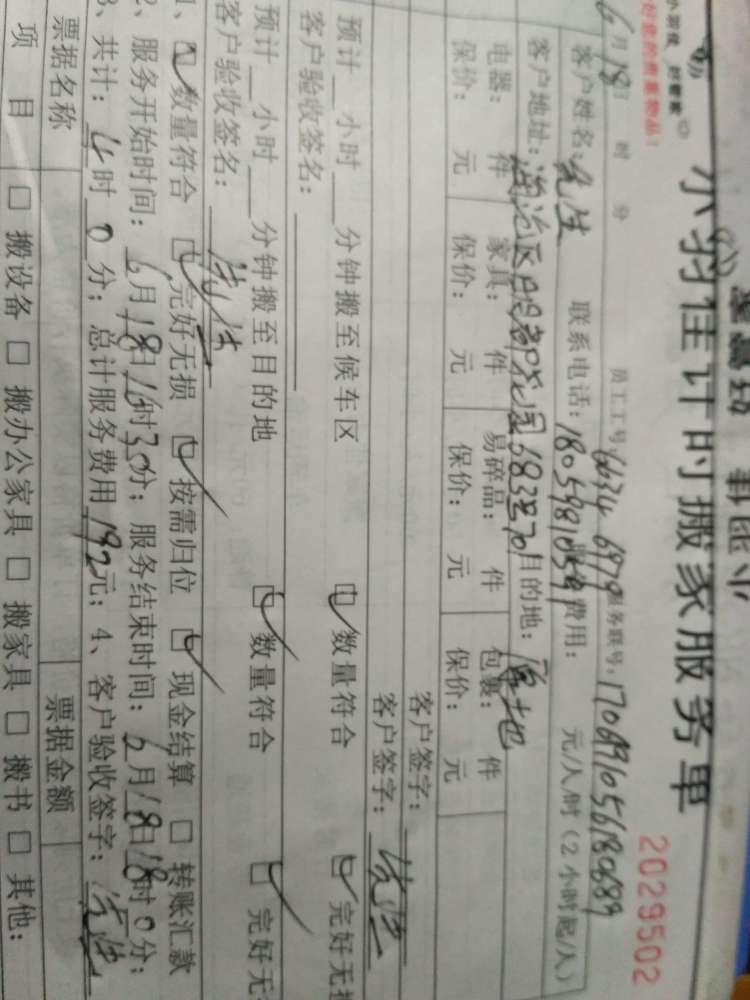 小羽佳 好管家
好您的贵重物品！
小羽佳计时搬家服务单
2029502
6月18日 时 分 员工工号: 服务账号:
客户姓名: 先生 联系电话: 费用: 元/人/时（2小时起/人）
客户地址: 目的地: 原地
电器: 件 家具: 件 易碎品: 件 包裹: 件
保价: 元 保价: 元 保价: 元 保价: 元
客户签字:
客户签字: 先生
预计 小时 分钟搬至候车区 数量符合 完好无损
客户验收签名:
预计 小时 分钟搬至目的地 数量符合 完好无
客户验收签名: 先生
1、 数量符合 完好无损 按需归位 现金结算 转账汇款
2、服务开始时间: 6月18日16时30分; 服务结束时间: 6月18日18时0分;
3、共计: 4时0分; 总计服务费用192元; 4、客户验收签字: 先生
票据名称 票据金额
项目 搬设备 搬办公家具 搬家具 搬书 其他: